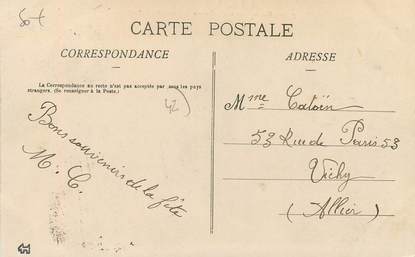 CARTE POSTALE
CORRESPONDANCE
La Correspondance au recto n'est pas acceptée par tous les pays
étrangers. (Se renseigner à la Poste.)
Bons souvenirs de la fête
M. C.
ADRESSE
Mme Catoën
53 Rue de Paris 53
Vichy
(Allier)